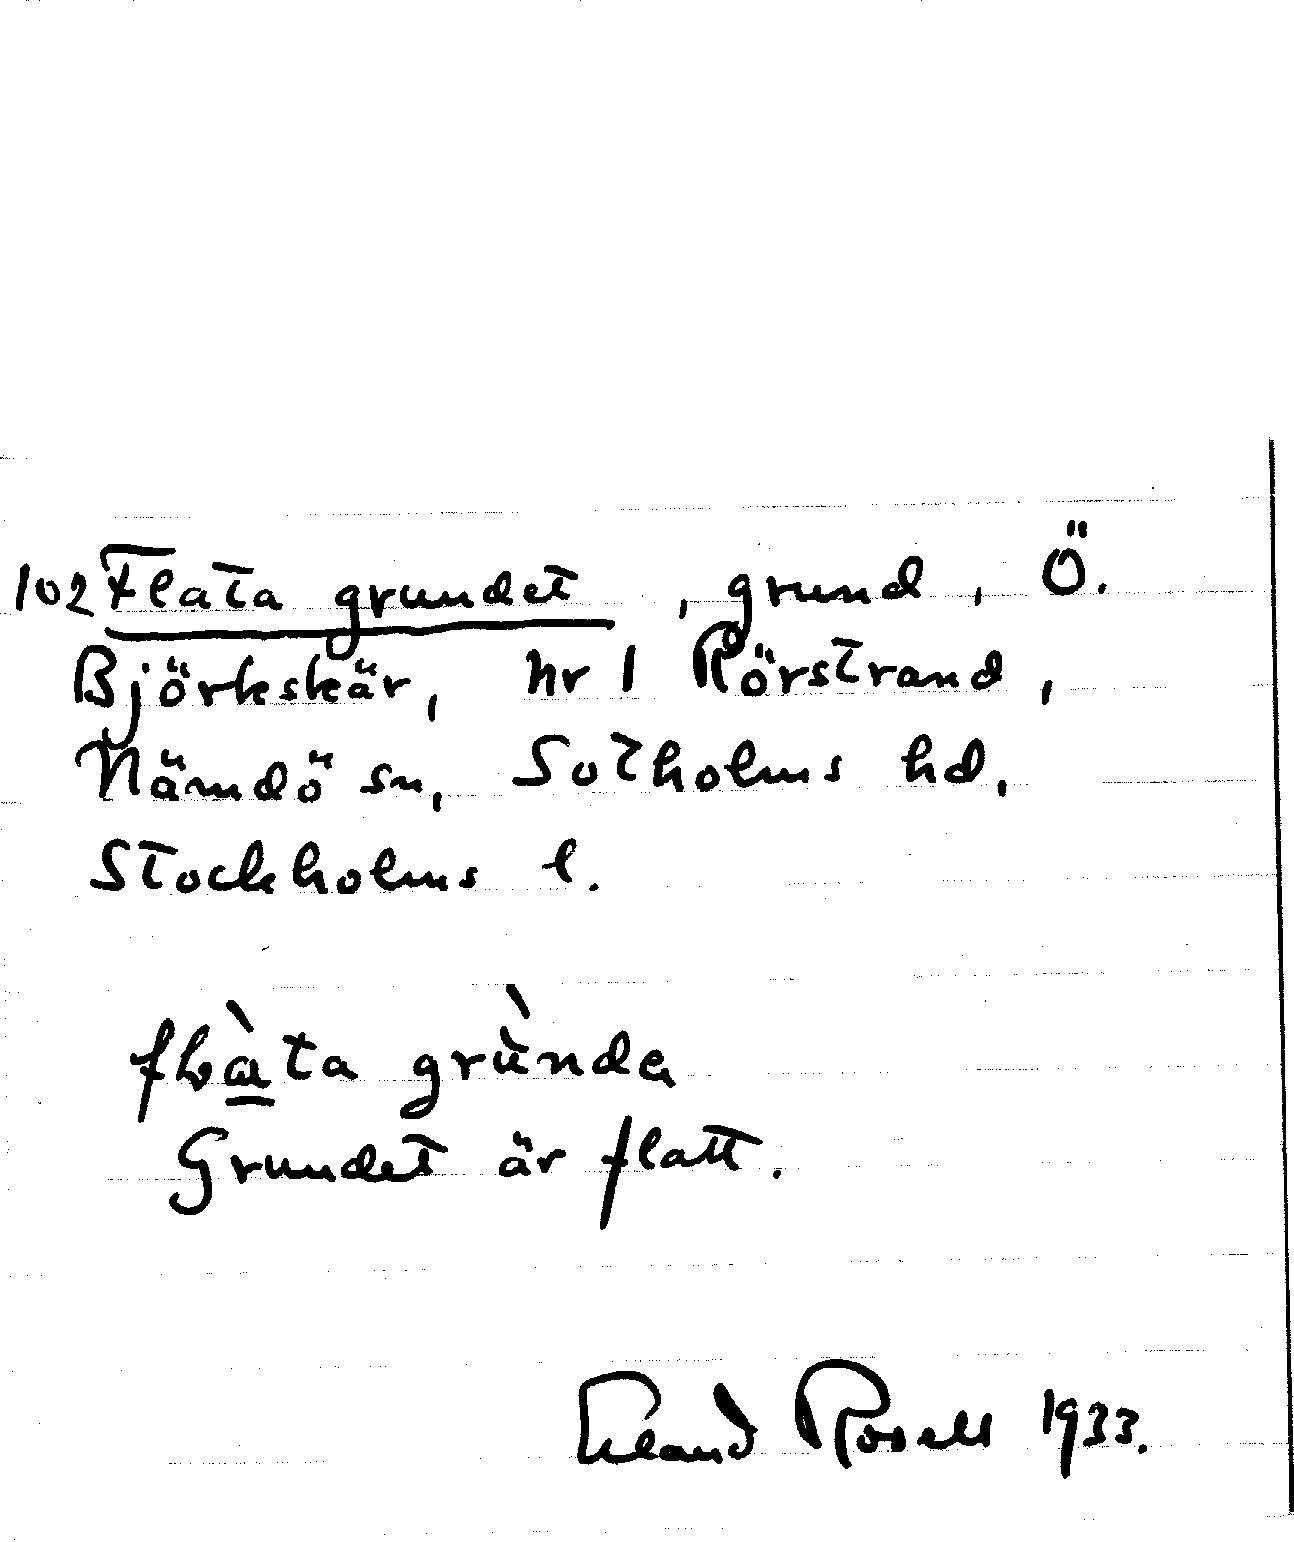 102 Flata grundet, grund, Ö.
Björkskär, nr 1 Rörstrand,
Nämdö sn, Sotholms hd,
Stockholms l.
flàta grùnda
Grundet är flatt.
Erland Rosell 1933.